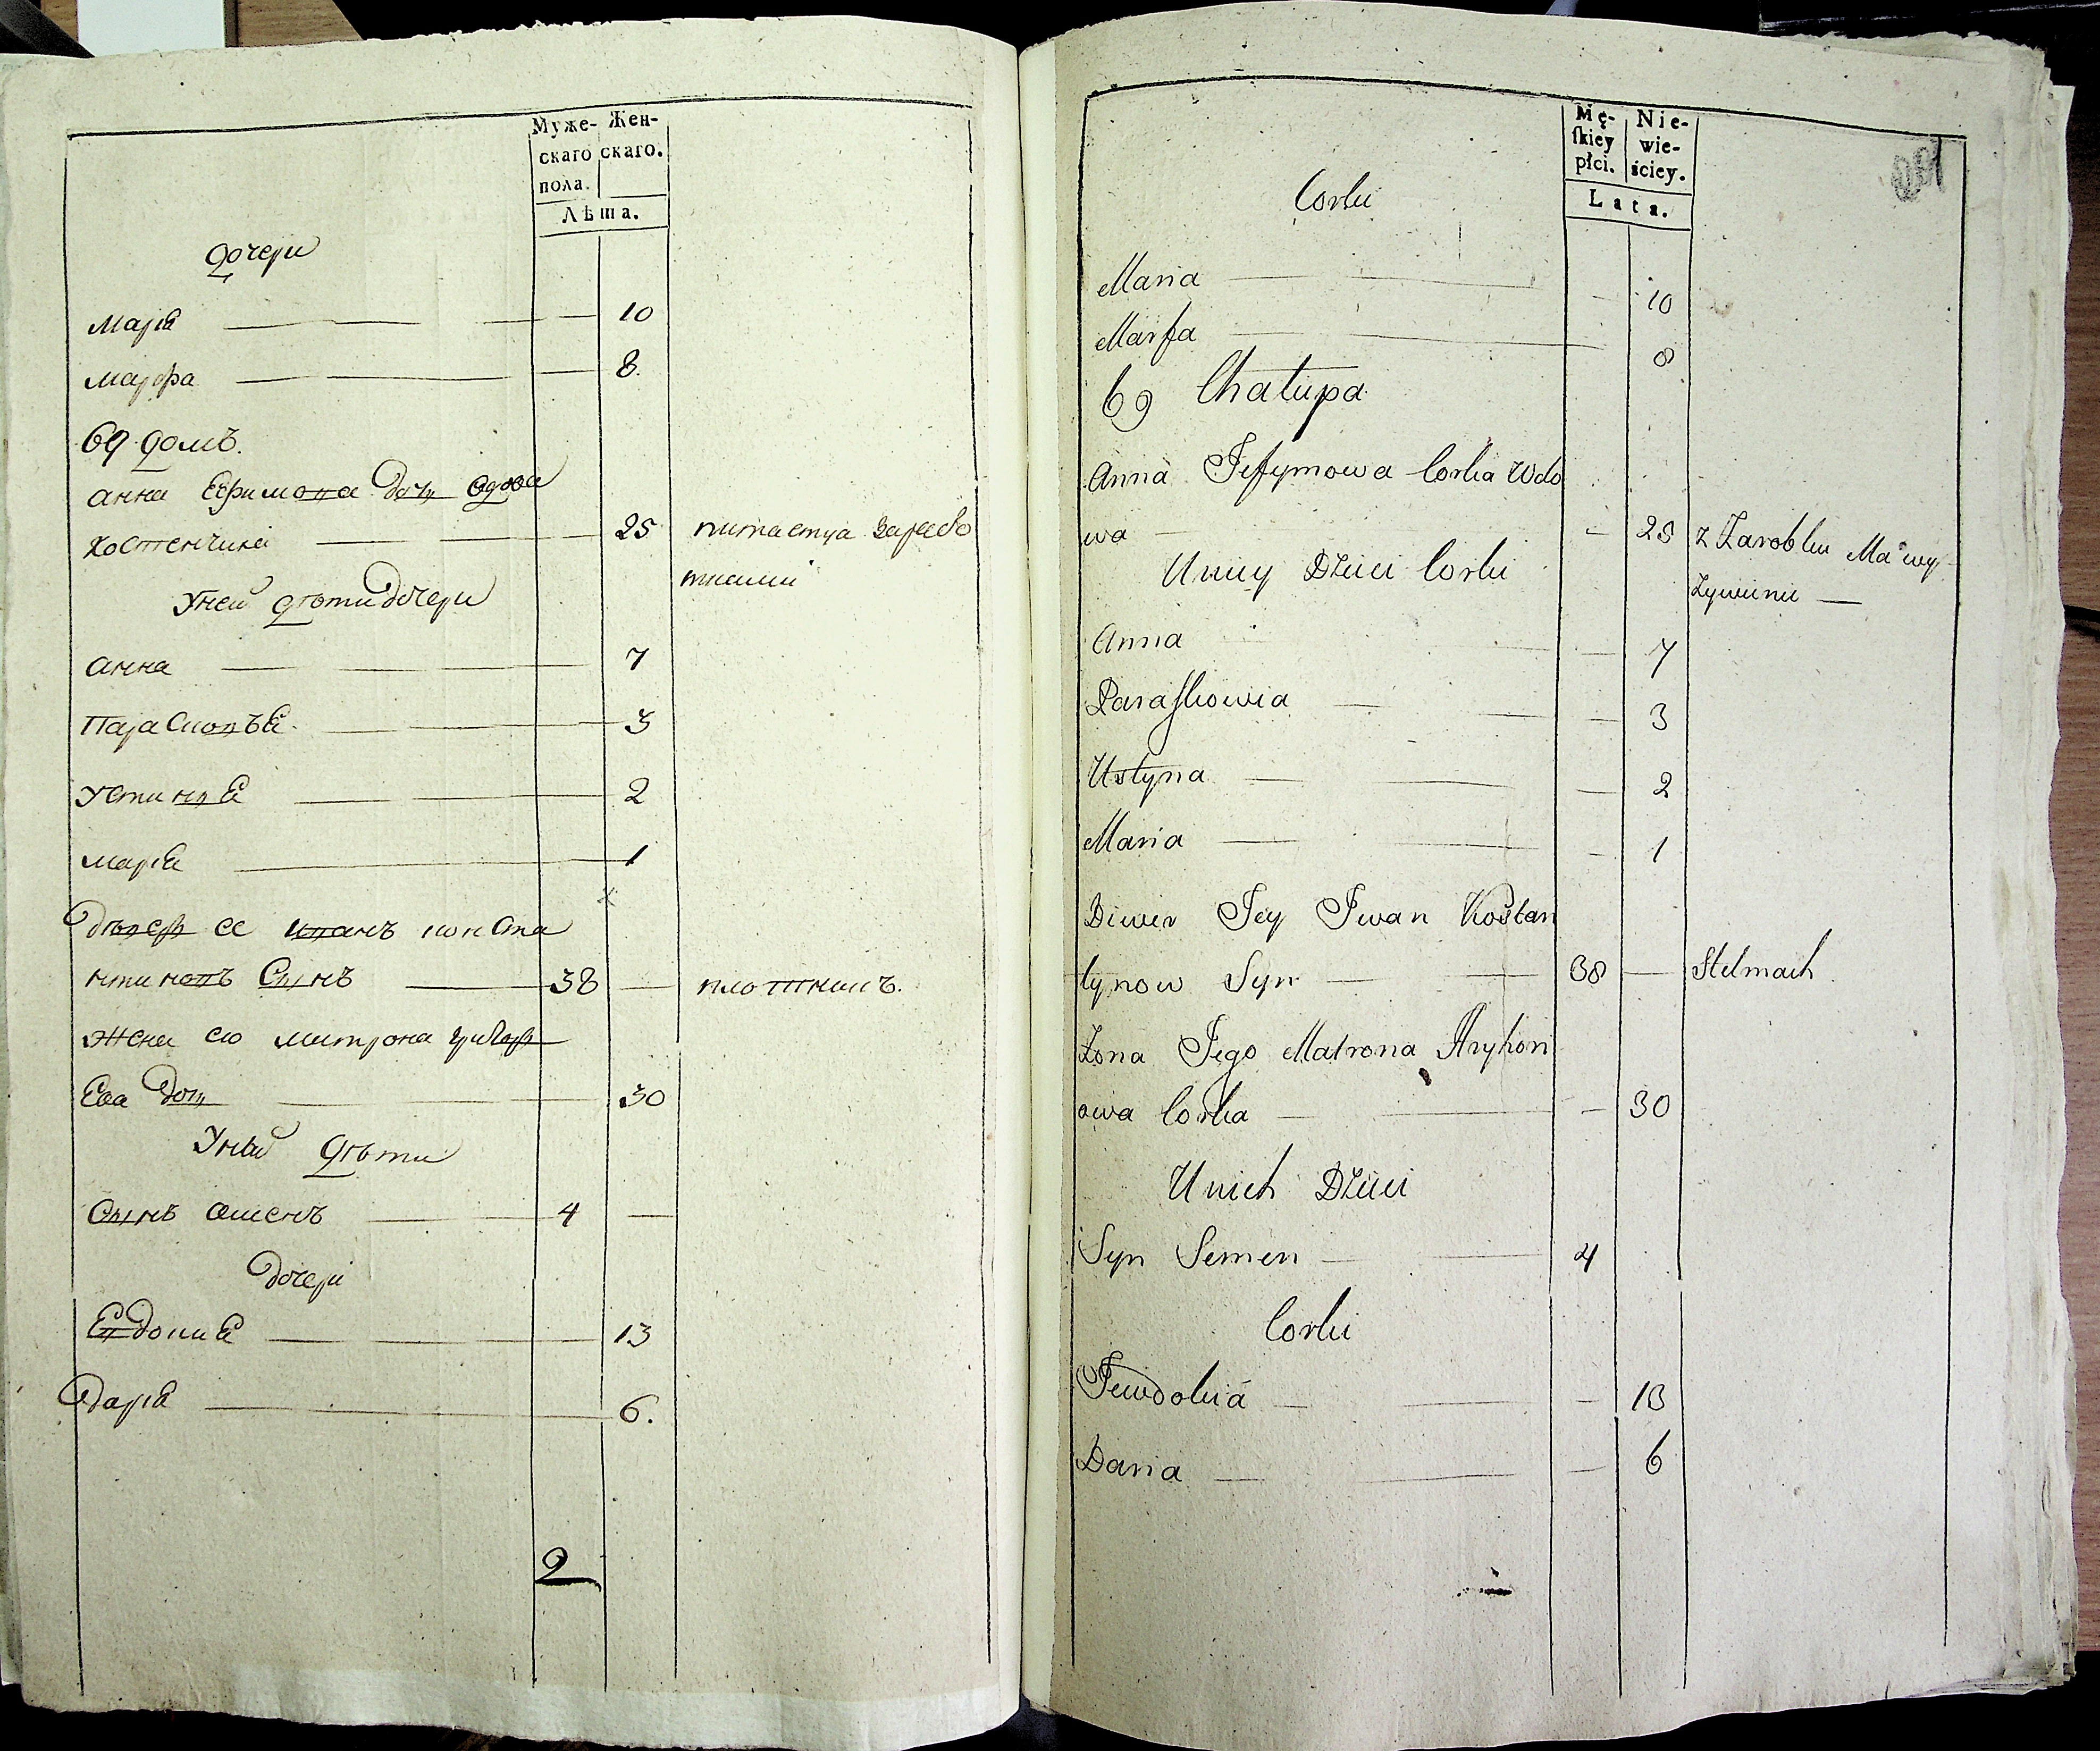 Муже- Жен-
скаго скаго.
пола.
Лѣта.
дочери
Марiя 10
Марфа 8.
69 домъ.
анна Ефимова дочь вдова
Костенчиха 25 питается зарабо
тками
Уней дѣти дочери
анна 7
Парасковья 3
Устинья 2
марiя 1
дѣверь ее иванъ конста
нтиновъ Сынъ 38 плотникъ.
жена ею митрона григорь
Ева дочь 30
Уный дѣти
Сынъ Семенъ 4
дочери
Евдокия 13
дарiя 6.
2
Mę- Nie-
skiey wie-
płci. ściey.
Lata.
Corki
Maria 10
Marfa 8
69 Chałupa
Anna Jefymowa Corka Wdo
wa 25 z Zarobku Ma wy
żywini
Uniey Dzieci Corki
Anna 7
Paraskowia 3
Ustyna 2
Maria 1
Diwer Jey Iwan Kostan
tynow Syn 38 Stelmach
Zona Jego Matrona Hryhori
owa Corka 30
Unich Dzieci
Syn Semen 4
Corki
Jewdokia 13
Daria 6